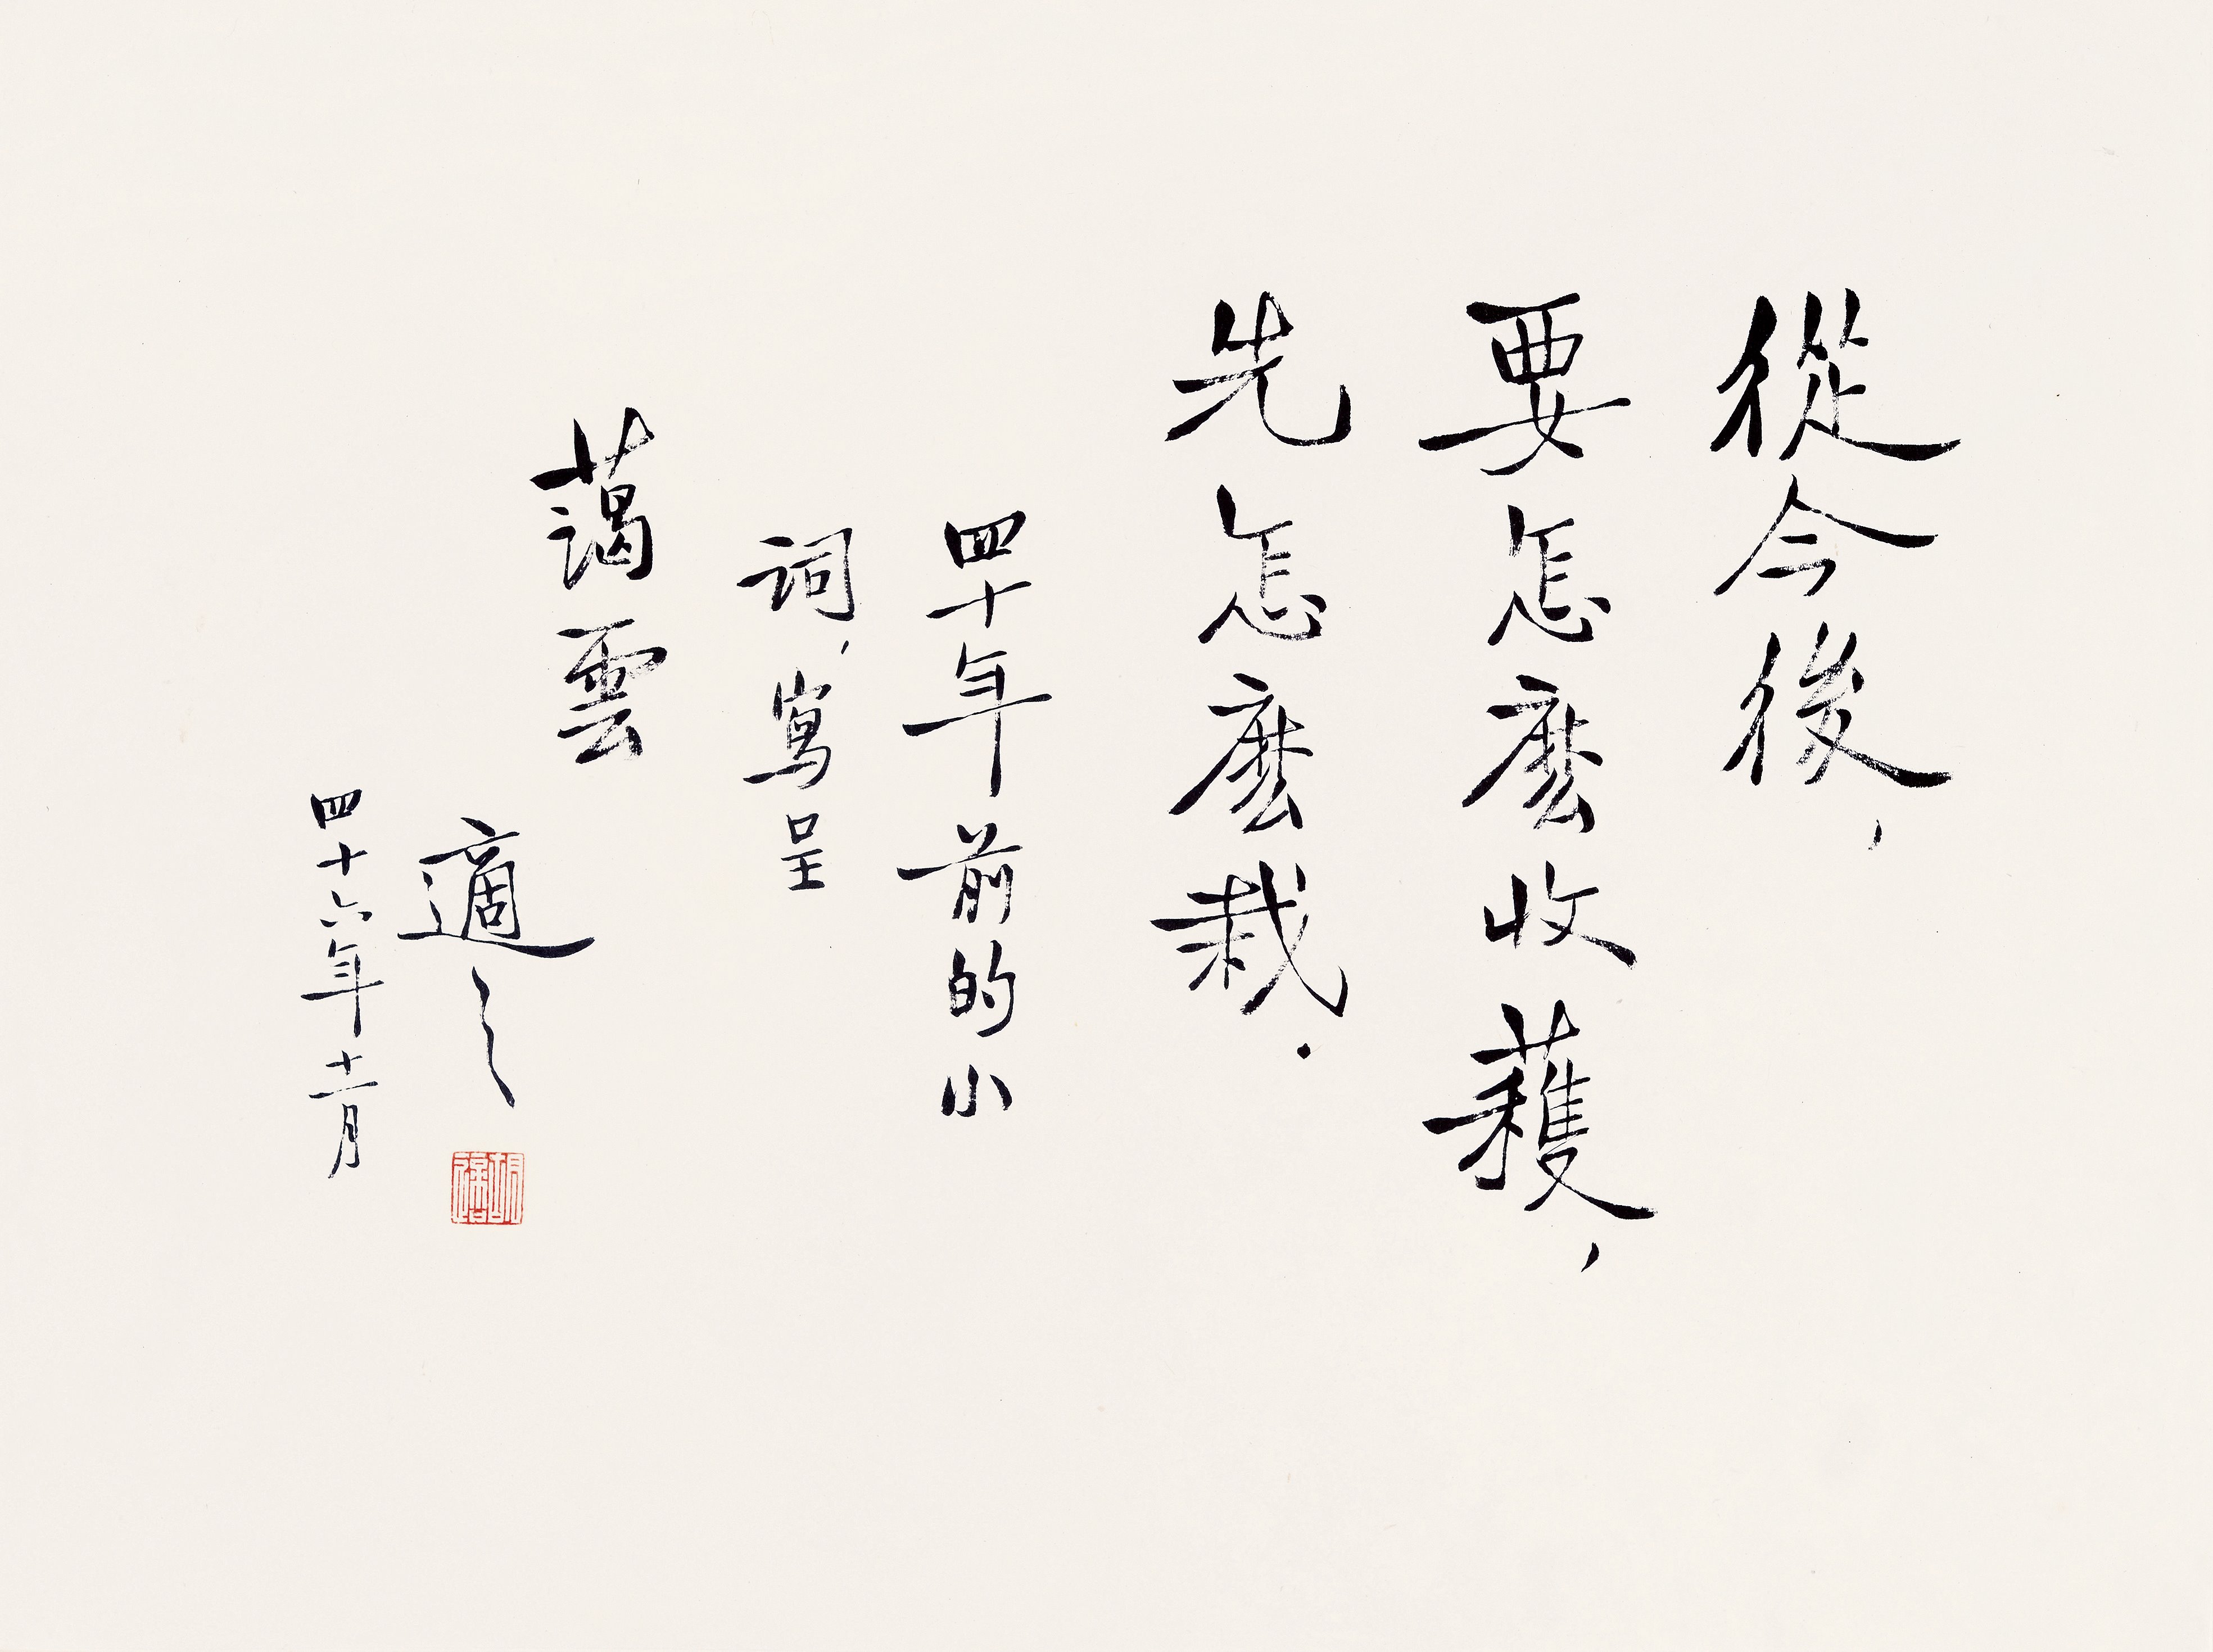 從今後,
要怎麼收穫,
先怎麼栽.
四十年前的小
詞,寫呈
藹雲
適之
胡適
四十六年十一月